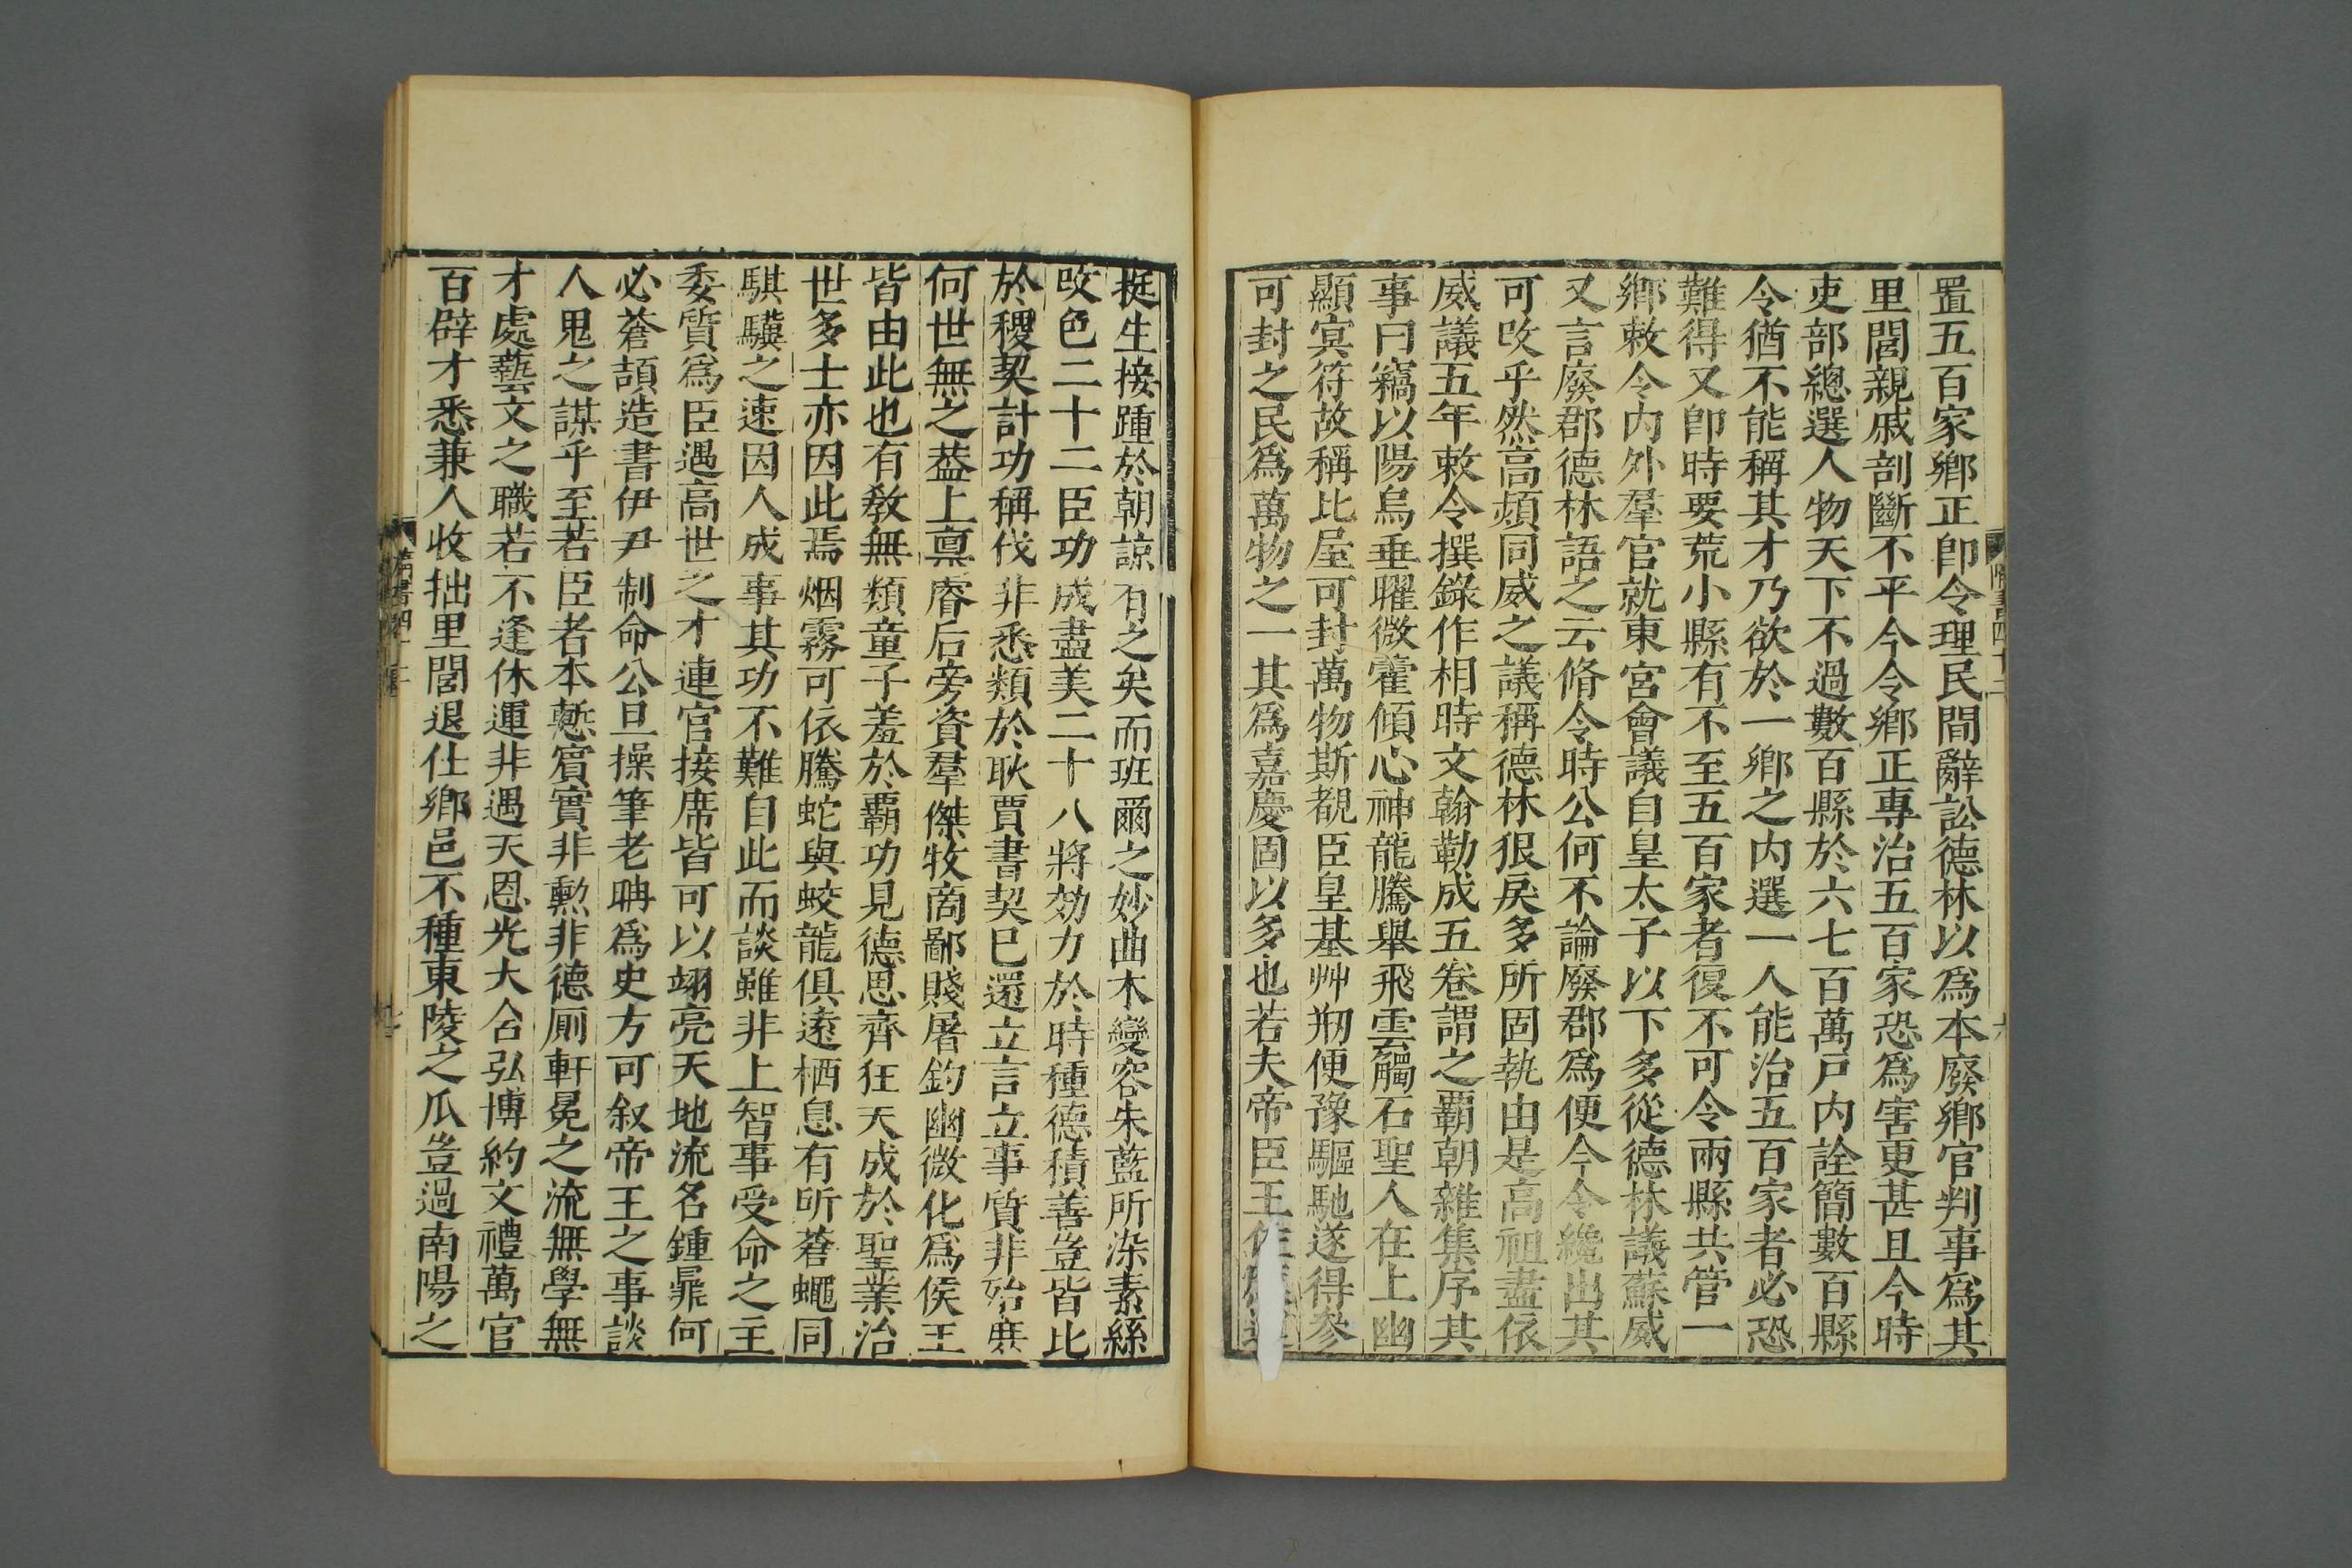 置五百家鄉正卽令理民間辭訟德林以爲本廢鄉官判事爲其
里閭親戚剖斷不平今令鄉正專治五百家恐爲害更甚且今時
吏部總選人物天下不過數百縣於六七百萬戸内詮簡數百縣
令猶不能稱其才乃欲於一鄉之内選一人能治五百家者必恐
難得又卽時要荒小縣有不至五百家者復不可令兩縣共管一
鄉敕令内外羣官就東宮會議自皇太子以下多從德林議蘇威
又言廢郡德林語之云脩令時公何不論廢郡爲便今令纔出其
可攺乎然高熲同威之議稱德林狠戾多所固執由是高祖盡依
威議五年敕令撰錄作相時文翰勒成五卷謂之霸朝雜集序其
事曰竊以陽烏垂曜微藿傾心神龍騰舉飛雲觸石聖人在上幽
顯㝠符故稱比屋可封萬物斯覩臣皇基艸剏便豫驅馳遂得參
可封之民爲萬物之一其爲嘉慶固以多也若夫帝臣王佐
挺生接踵於朝諒有之矣而班爾之妙曲木變容朱藍所染素絲
攺色二十二臣功成盡美二十八將効力於時種德積善豈皆比
於稷契計功稱伐非悉類於耿賈書契已還立言立事質非殆庶
何世無之葢上稟睿后旁資羣傑牧商鄙賤屠釣幽微化爲侯王
皆由此也有敎無類童子羞於霸功見德思齊狂天成於聖業治
世多士亦因此焉烟霧可依騰蛇與蛟龍俱遠栖息有所蒼蠅同
騏驥之速因人成事其功不難自此而談雖非上智事受命之主
委質爲臣遇高世之才連官接席皆可以翊亮天地流名鍾鼎何
必蒼頡造書伊尹制命公旦操筆老聃爲史方可叙帝王之事談
人鬼之謀乎至若臣者本慙賓實非勲非德厠軒冕之流無學無
才處藝文之職若不逢休運非遇天恩光大含弘博約文禮萬官
百辟才悉兼人收拙里閭退仕鄉邑不種東陵之瓜豈過南陽之